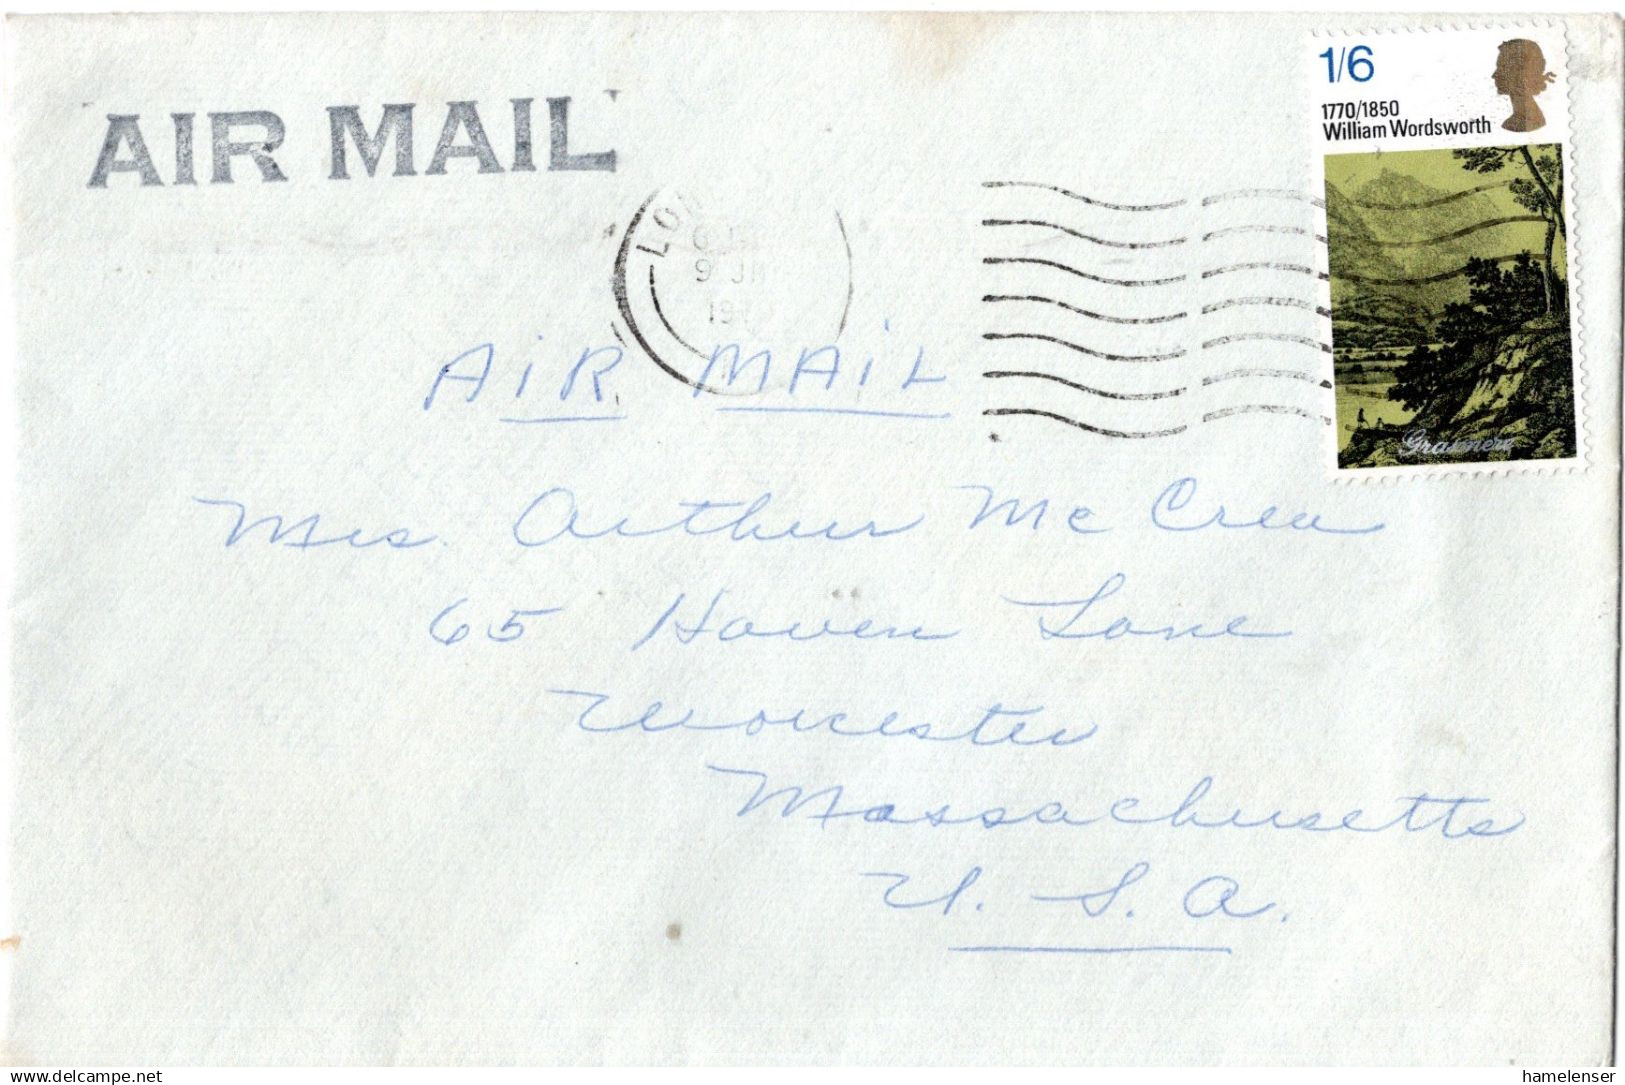 AIR MAIL
1/6
1770/1850
William Wordsworth
Grasmere
AIR MAIL
Mrs. Arthur McCrea
65 Haven Lane
Worcester
Massachusetts
U. S. A.
www.delcampe.net
hamelenser